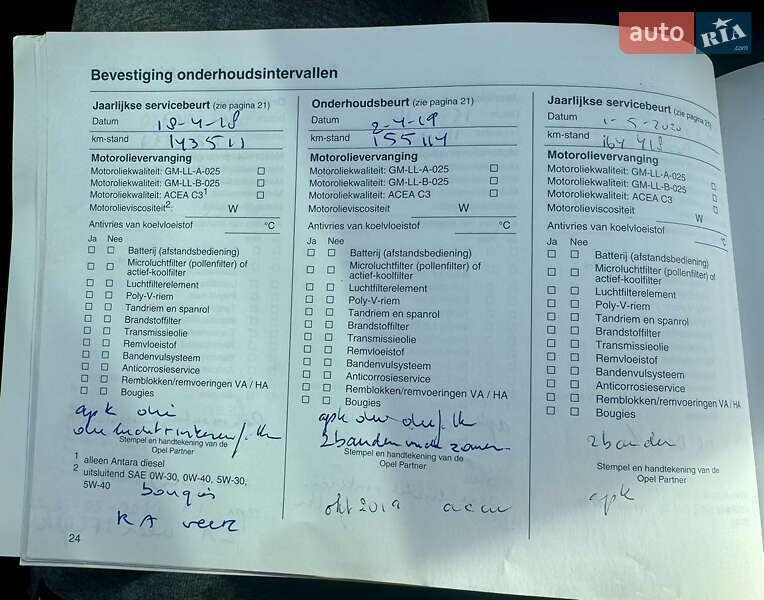 auto RIA .com
Bevestiging onderhoudsintervallen
Jaarlijkse servicebeurt (zie pagina 21)
Datum 18-4-18
km-stand 143511
Motorolievervanging
Motoroliekwaliteit: GM-LL-A-025
Motoroliekwaliteit: GM-LL-B-025
Motoroliekwaliteit: ACEA C3¹
Motorolieviscositeit²: W
Antivries van koelvloeistof °C
Ja Nee
Batterij (afstandsbediening)
Microluchtfilter (pollenfilter) of
actief-koolfilter
Luchtfilterelement
Poly-V-riem
Tandriem en spanrol
Brandstoffilter
Transmissieolie
Remvloeistof
Bandenvulsysteem
Anticorrosieservice
Remblokken/remvoeringen VA / HA
Bougies
apk
Stempel en handtekening van de
Opel Partner
1 alleen Antara diesel
2 uitsluitend SAE 0W-30, 0W-40, 5W-30,
5W-40
bougies
RA veer
24
Onderhoudsbeurt (zie pagina 21)
Datum 2-4-19
km-stand 155114
Motorolievervanging
Motoroliekwaliteit: GM-LL-A-025
Motoroliekwaliteit: GM-LL-B-025
Motoroliekwaliteit: ACEA C3
Motorolieviscositeit W
Antivries van koelvloeistof °C
Ja Nee
Batterij (afstandsbediening)
Microluchtfilter (pollenfilter) of
actief-koolfilter
Luchtfilterelement
Poly-V-riem
Tandriem en spanrol
Brandstoffilter
Transmissieolie
Remvloeistof
Bandenvulsysteem
Anticorrosieservice
Remblokken/remvoeringen VA / HA
Bougies
apk
2 banden
Stempel en handtekening van de
Opel Partner
okt 2019 accu
Jaarlijkse servicebeurt (zie pagina 21)
Datum 1-5-2020
km-stand 164418
Motorolievervanging
Motoroliekwaliteit: GM-LL-A-025
Motoroliekwaliteit: GM-LL-B-025
Motoroliekwaliteit: ACEA C3
Motorolieviscositeit W
Antivries van koelvloeistof °C
Ja Nee
Batterij (afstandsbediening)
Microluchtfilter (pollenfilter) of
actief-koolfilter
Luchtfilterelement
Poly-V-riem
Tandriem en spanrol
Brandstoffilter
Transmissieolie
Remvloeistof
Bandenvulsysteem
Anticorrosieservice
Remblokken/remvoeringen VA / HA
Bougies
2 banden
Stempel en handtekening van de
Opel Partner
apk